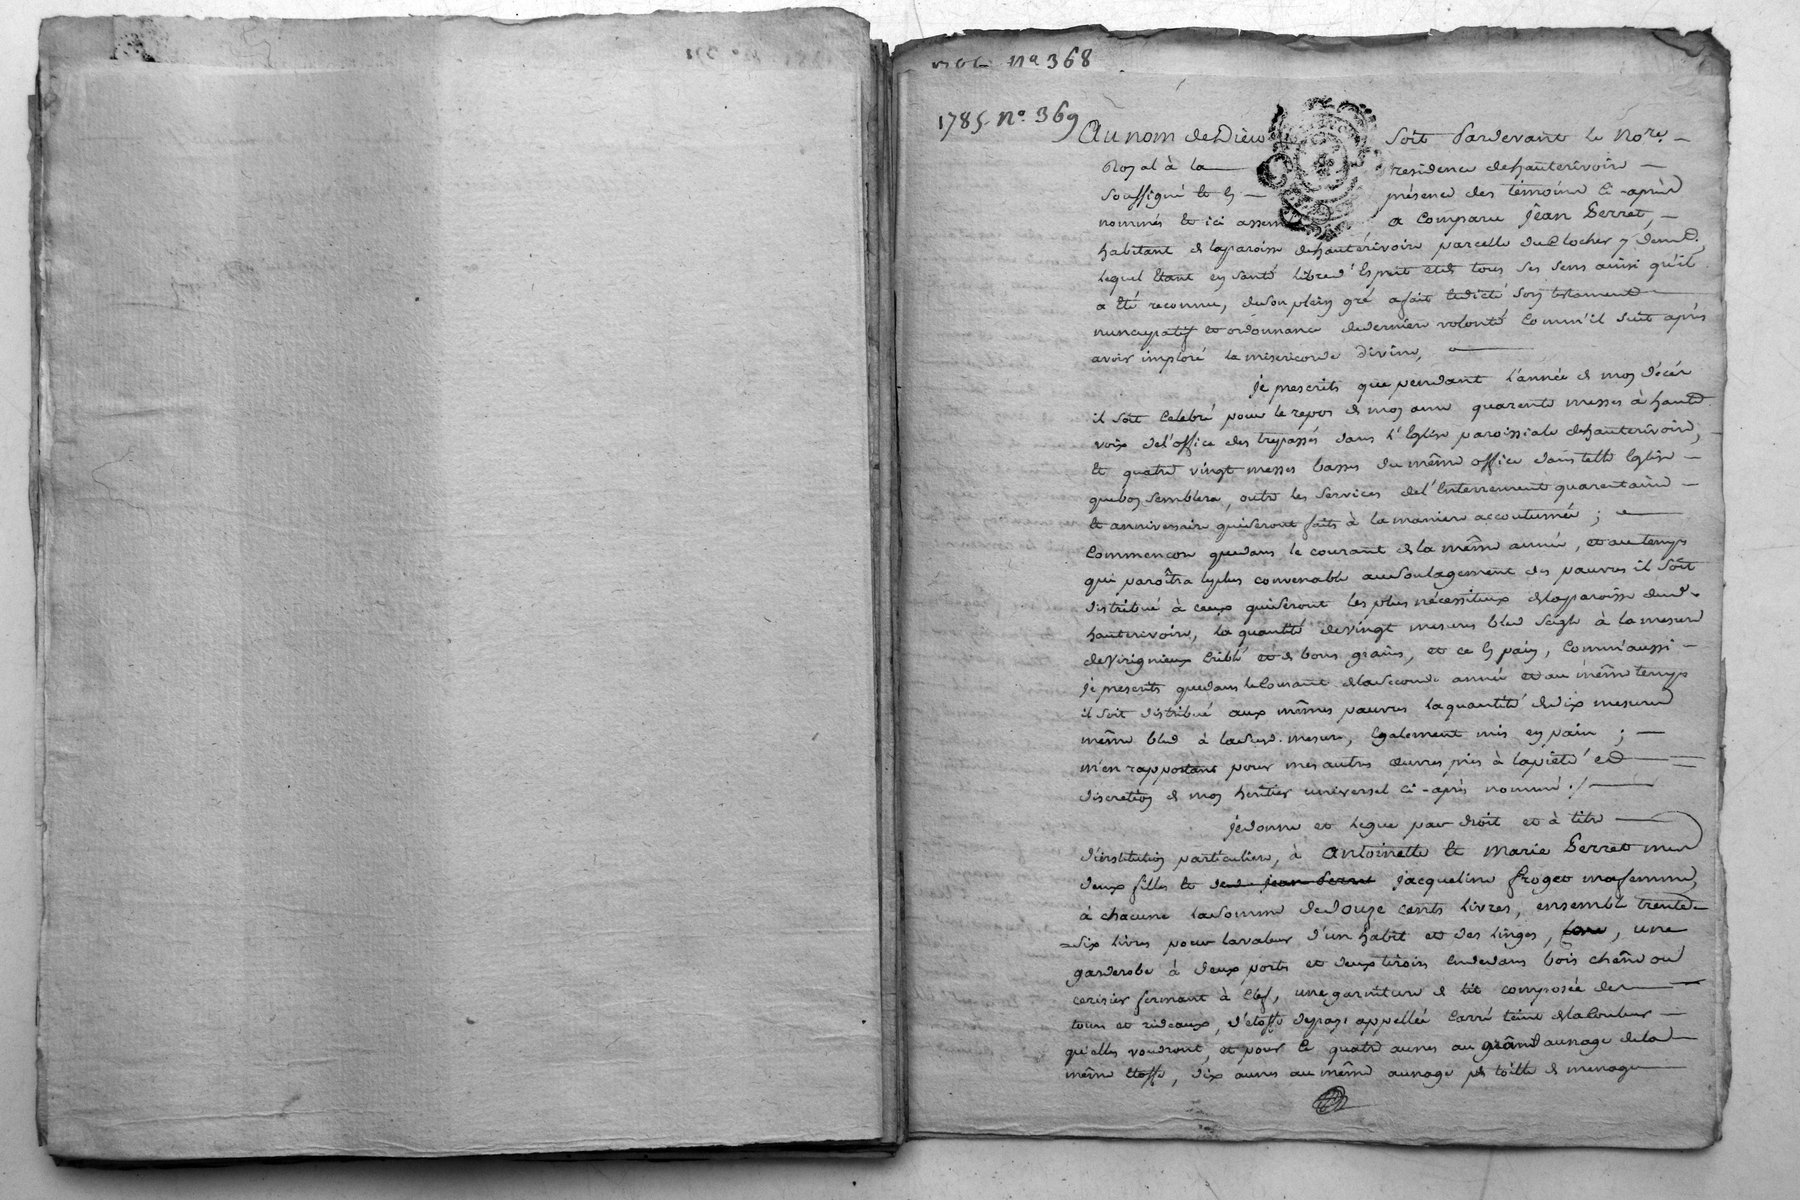 nº 368
1785 nº 369
Au nom de Dieu Soit Pardevant le No.re
Royal à la residence de hauterivoire
soussigné et en présence des témoins ci-après
nommés et ici assem a comparu Jean Perret,
habitant de la paroisse de hauterivoire parcelle du Clocher y dem.t,
lequel étant en santé libre d'Esprit et de tous ses sens ainsi qu'il
a été reconnu, de son plein gré a fait et dicté son testament
nuncupatif et ordonnance de derniere volonté comm'il suit après
avoir imploré la misericorde Divine,
Je prescrits que pendant l'année de mon décès
il soit celebré pour le repos de mon ame quarente messes à haute
voix de l'office des trepassés dans l'Eglise paroissiale de hauterivoire,
et quatre vingt messes basses du même office dans telle Eglise
que bon semblera, outre les services de l'Enterrement quarentaine
et anniversaire qui seront faits à la maniere accoutumée ;
Commencon que dans le courant de la même année, et au temps
qui paroîtra le plus convenable au soulagement des pauvres il soit
distribué à ceux qui seront les plus nécessiteux de la paroisse dud.
hauterivoire, la quantité de vingt mesures bled seigle à la mesure
de Virignieux criblé et de bons grains, et ce en pain, comm'aussi
je prescrits que dans le courant de la seconde année et au même temps
il soit distribué aux mêmes pauvres la quantité de dix mesures
même bled à la susd. mesure, également mis en pain ;
m'en rapportant pour mes autres œuvres pies à la piété et
discretion de mon heritier universel ci-après nommé ./
je donne et legue par droit et à titre
d'institution particuliere, à Antoinette et Marie Perret mes
deux filles et de jean Perret jacqueline froget ma femme,
à chacune la somme de douze cents livres, ensemble trente
=six livres pour la valeur d'un habit et des linges, , une
garderobe à deux portes et deux tiroirs au dedans bois chêne ou
cerisier fermant à clef, une garniture de lit composée de
tours et rideaux, d'étoffe de pays appellée carré teint de la couleur
qu'elles voudront, et pour ce quatre aunes au grand aunage de la
même étoffe, dix aunes au même aunage de toille de menage